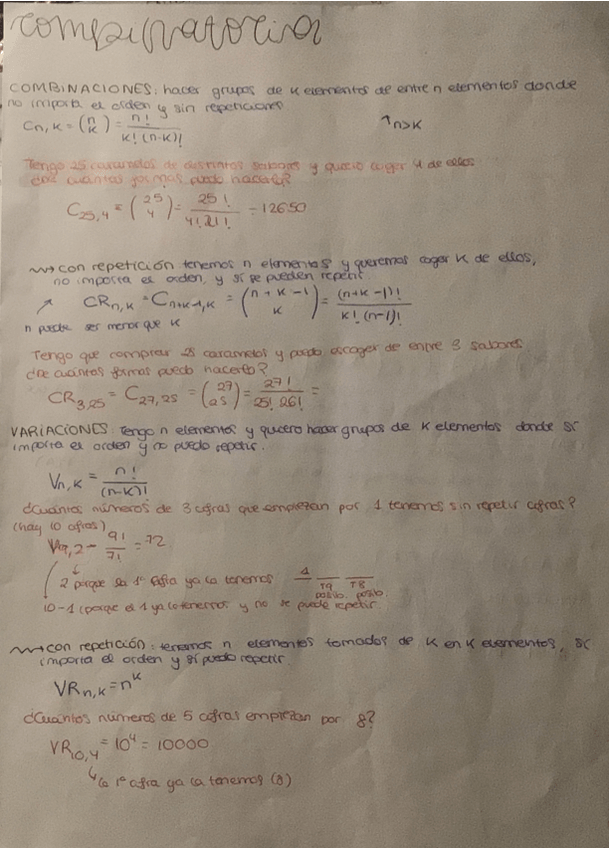 combinatoria
COMBINACIONES: hacer grupos de k elementos de entre n elementos donde
no importa el orden y sin repeticiones
Cn,k = (n k) = n! / k!(n-k)!
↑ n>k
Tengo 25 caramelos de distintos sabores y quiero coger 4 de ellos
¿De cuántas formas puedo hacerlo?
C25,4 = (25 4) = 25! / 4! 21! = 12650
con repetición tenemos n elementos y queremos coger k de ellos,
no importa el orden, y sí se pueden repetir
CRn,k = Cn+k-1,k = (n+k-1 k) = (n+k-1)! / k!(n-1)!
n puede ser menor que k
Tengo que comprar 25 caramelos y puedo escoger de entre 3 sabores
¿De cuántas formas puedo hacerlo?
CR3,25 = C27,25 = (27 25) = 27! / 25! 26! =
VARIACIONES: Tengo n elementos y quiero hacer grupos de k elementos donde SÍ
importa el orden y no puedo repetir.
Vn,k = n! / (n-k)!
¿Cuántos números de 3 cifras que empiezan por 1 tenemos sin repetir cifras?
(hay 10 cifras)
V9,2 = 9! / 7! = 72
2 porque la 1ª cifra ya la tenemos 1 __ __
T9 T8
posib. posib.
10-1 (porque el 1 ya lo tenemos y no se puede repetir
con repetición: tenemos n elementos tomados de k en k elementos, SÍ
importa el orden y sí puedo repetir.
VRn,k = n^k
¿Cuántos números de 5 cifras empiezan por 8?
VR10,4 = 10^4 = 10000
↳ la 1ª cifra ya la tenemos (8)